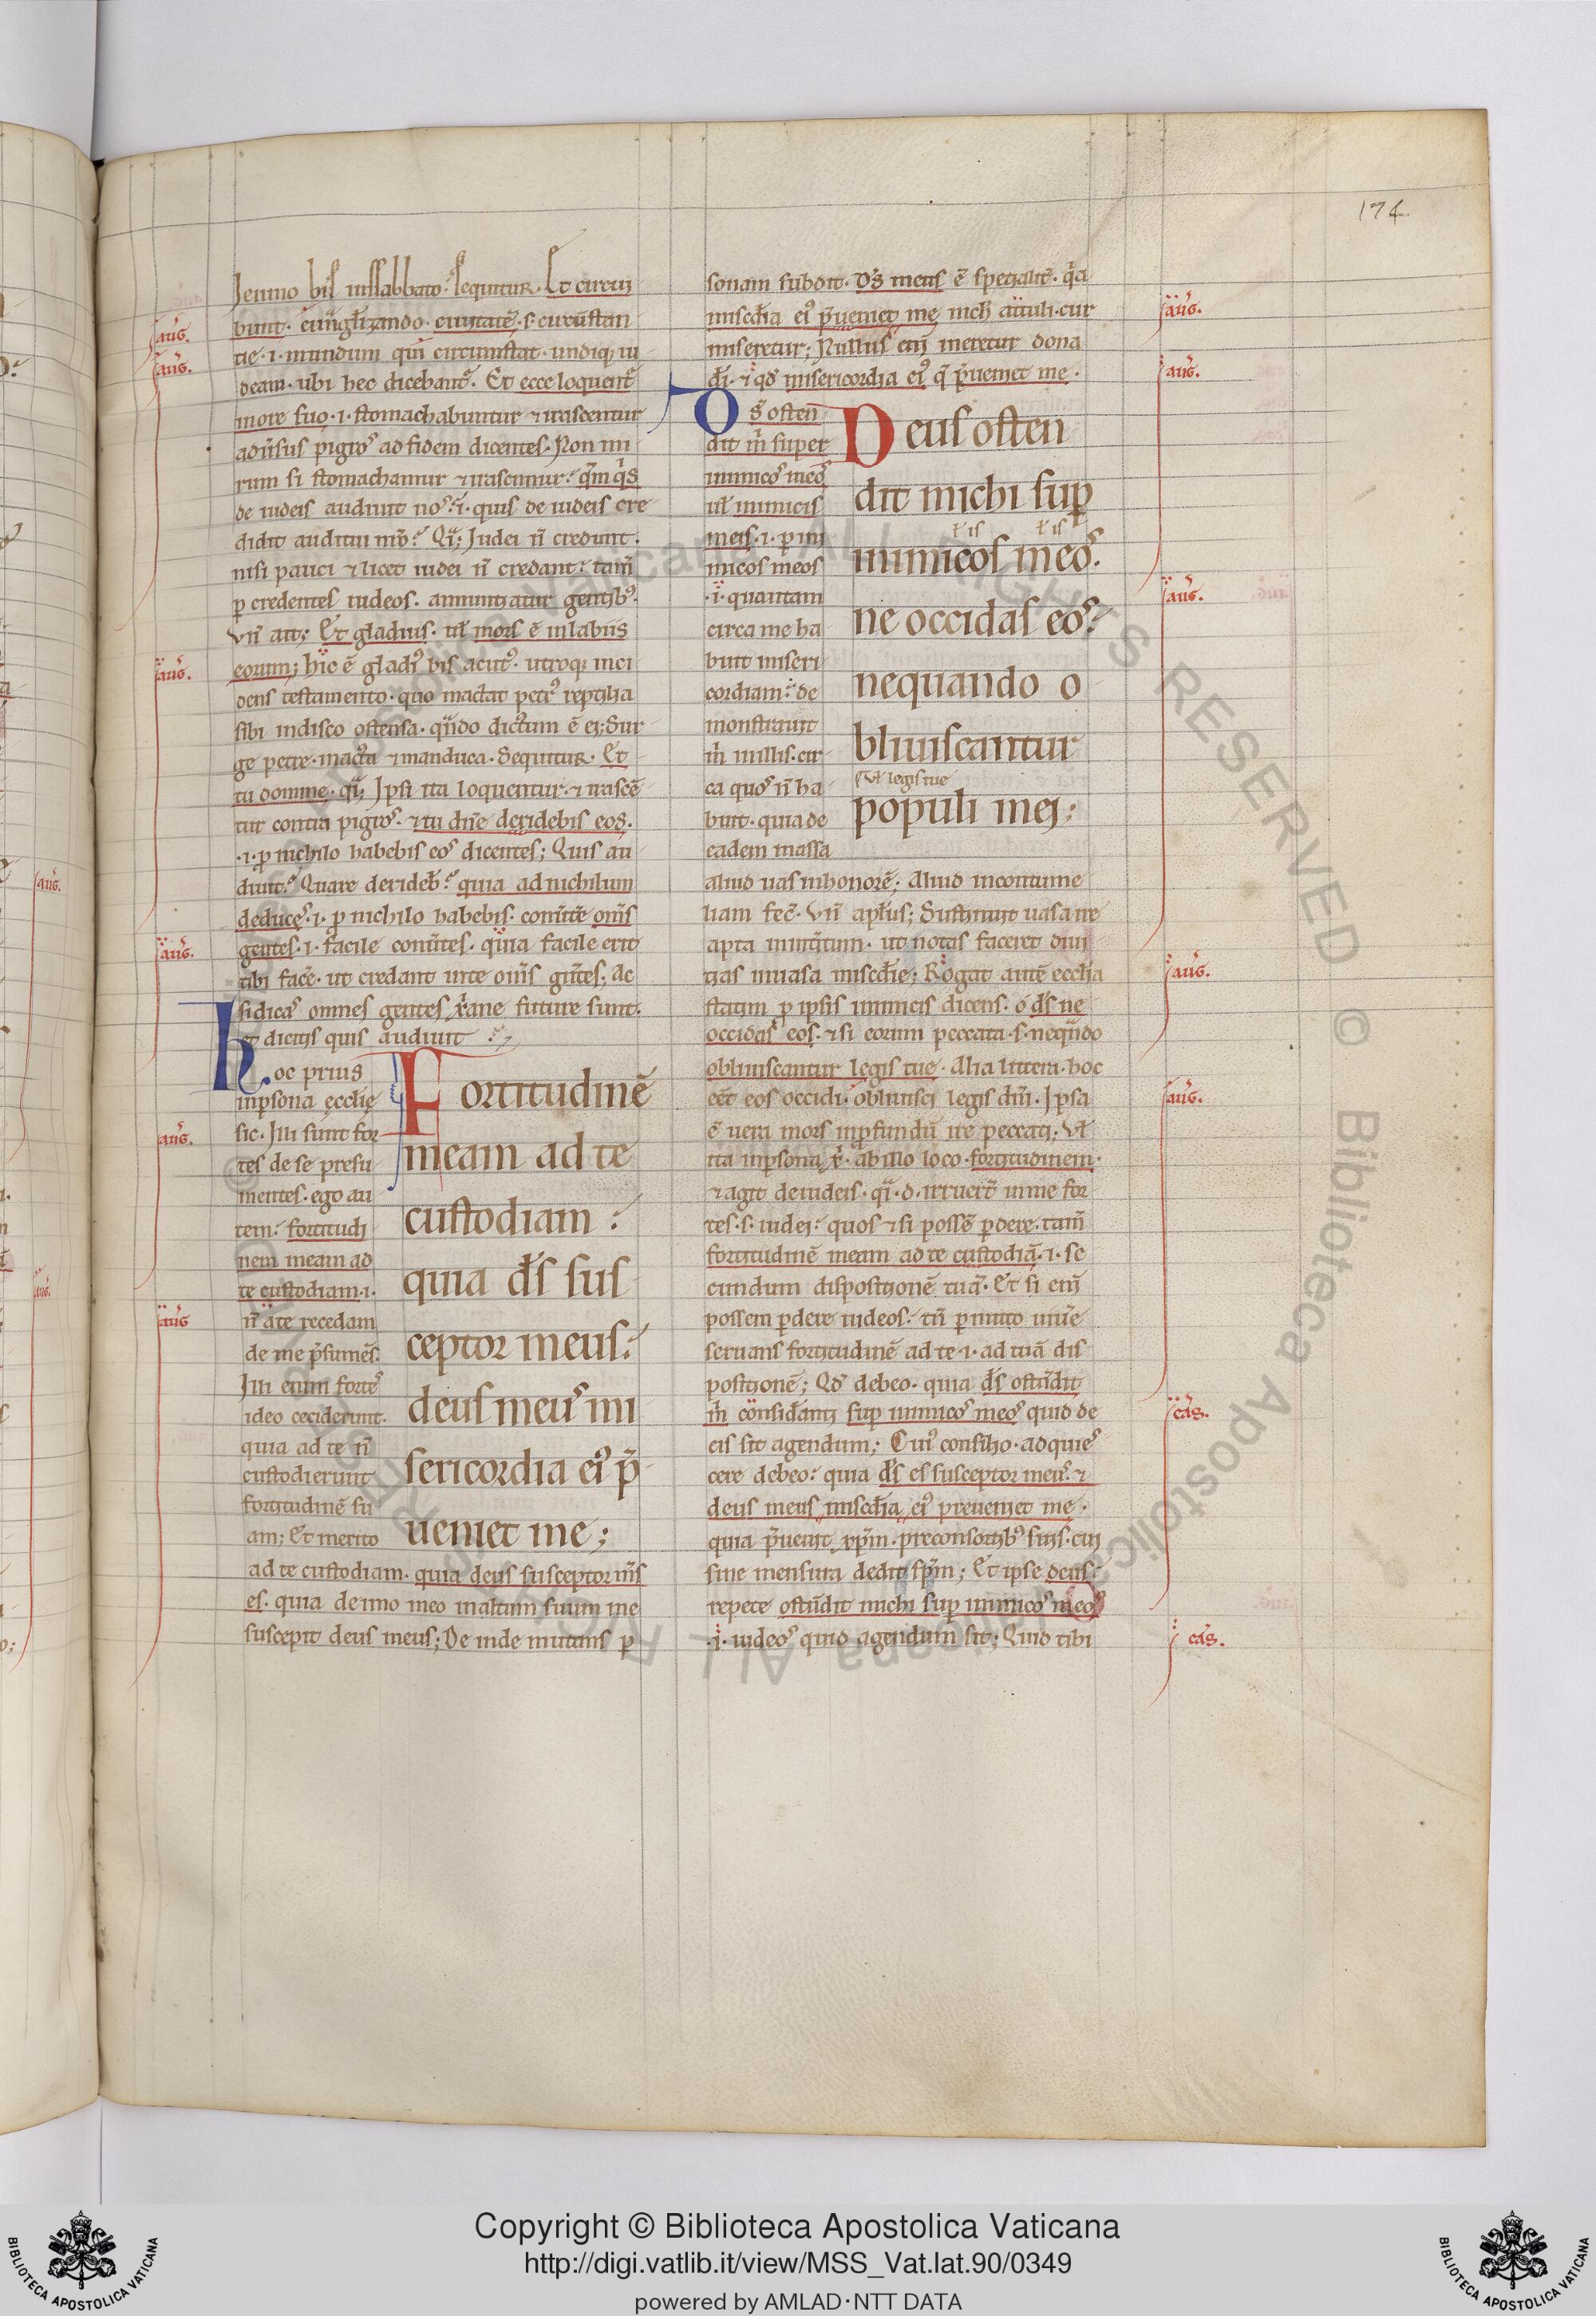 174
Ieiuno bis in sabbato. Sequitur. Et circui
bunt. euuāgl̄izando. ciuitatē. s. circūstan
tie. i. mundum qui circumstat. undiq; iu
deam. ubi hec dicebant᷑. Et ecce loquent᷑
more suo. i. stomachabuntur ⁊ irascentur
adūsus pigros ad fidem dicentes. Non mi
rum si stomachamur ⁊ irascimur. qm̄ qͥs
de iudeis audiuit nos. i. quis de iudeis cre
didit auditui nr̄o? Iudei n̄ credunt.
nisi pauci ⁊ licet iudei n̄ credant. tam̄
ꝑ credentes iudeos. annuntiatur gentibꝰ.
Vn̄ ait; Et gladius. ul̄ mors ē in labiis
eorum; hic ē gladiꝰ bis acutꝰ. utroq; inci
dens testamento. quo mactat petrꝰ reptilia
sibi in disco ostensa. qn̄do dictum ē ei; Sur
ge petre. macta ⁊ manduca. Sequitur. Et
tu domine. Ipsi ita loquentur. ⁊ irascē
tur contra pigros. ⁊ tu dn̄e deridebis eos.
.i. ꝑ nichilo habebis eos dicentes; Quis au
diuit? Quare deridebis? quia ad nichilum
deduces. i. ꝑ nichilo habebis. om̄s
gentes. i. facile quia facile erit
tibi face᷑. ut credant in te om̄s gn̄tes; Ac
si dicas omnes gentes xp̄iane future sunt.
et dicitis quis audiuit
hoc prius
in ꝑsona ecclie
sic. Illi sunt for
tes de se presu
mentes. ego au
tem. fortitudi
nem meam ad
te custodiam. i.
n̄ a te recedam
de me p̄sumēs.
Illi enim fortes
ideo ceciderunt.
quia ad te n̄
custodierunt
fortitudinē su
am; Et merito
ad te custodiam. quia deus susceptor m̄s
es. quia de imo meo in altum suum me
suscepit deus meus; De inde mutans ꝑ
Fortitudinē
meam ad te
custodiam
quia ds̄ sus
ceptor meus.
deus meus mi
sericordia eiꝰ p̄
ueniet me;
sonam subdit. Ds̄ meus ē specialit᷑. qͥa
miscd̄ia eiꝰ p̄ueniet me nich̄ attuli. cur
miseretur; Nullus eni᷑ meretur dona
di᷑. ⁊ qd̄ misericordia eiꝰ q̄ p̄ueniet me.
Ds̄ osten
dit m̄ super
inimicos meos
ul̄ inimicis
meis. i. ꝑ ini
micos meos
.i. quantam
circa me ha
buit miseri
cordiam. de
monstrauit
m̄ in illis. cir
ca quos n̄ ha
buit. quia de
eadem massa
Deus osten
dit michi suꝑ
ł is ł is
inimicos meos.
ne occidas eos.
nequando o
bliuiscantur
ul̄ legis tue
populi mei;
aliud uas in honorē; Aliud in contume
liam fec̄. Vn̄ apl̄us; Sustinuit uasa ire
apta in interitum. ut notas faceret diui
tias in uasa miscd̄ie; Rogat autē eccl̄ia
statim ꝑ ipsis inimicis dicens. o ds̄ ne
occidas eos. ⁊ si eorum peccata. s. neqn̄do
obliuiscantur legis tue. Alia littera. hoc
eēt eos occidi. obliuisci legis dn̄i. Ipsa
ē uera mors in ꝑfundū ire peccati; Vł
ita in ꝑsona x̄. ab illo loco. fortitudinem.
⁊ agit de iudeis. q. d. irruert᷑ in me for
tes. s. iudei. quos ⁊ si possē ꝑdere. tam̄
fortitudinē meam ad te custodiā. i. se
cundum dispositionē tuā. Et si eni᷑
possem ꝑdere iudeos. tn̄ ꝑmitto uiue᷑
seruans fortitudinē ad te. i. ad tuā dis
positionē; Qd̄ debeo. quia ds̄ ostn̄dit
m̄ consid̄anti suꝑ inimicos meos quid de
eis sit agendum; Cuiꝰ consilio. adquies
cere debeo. quia ds̄ es susceptor meus. ⁊
deus meus miscd̄ia eiꝰ preueniet me.
quia p̄uenit xp̄m. pre consortibꝰ suis. cui
sine mensura dedit sp̄m; Et ipse deus.
repete ostn̄dit michi suꝑ inimicos meos
.i. iudeos quid agendum sit; Quid tibi
aug.
aug.
aug.
aug.
aug.
aug
aug.
aug.
aug.
aug.
aug.
cas.
cas.
aug.
© Biblioteca Apostolica Vaticana ALL RIGHTS RESERVED
Copyright © Biblioteca Apostolica Vaticana
http://digi.vatlib.it/view/MSS_Vat.lat.90/0349
powered by AMLAD·NTT DATA
BIBLIOTECA APOSTOLICA VATICANA
BIBLIOTECA APOSTOLICA VATICANA